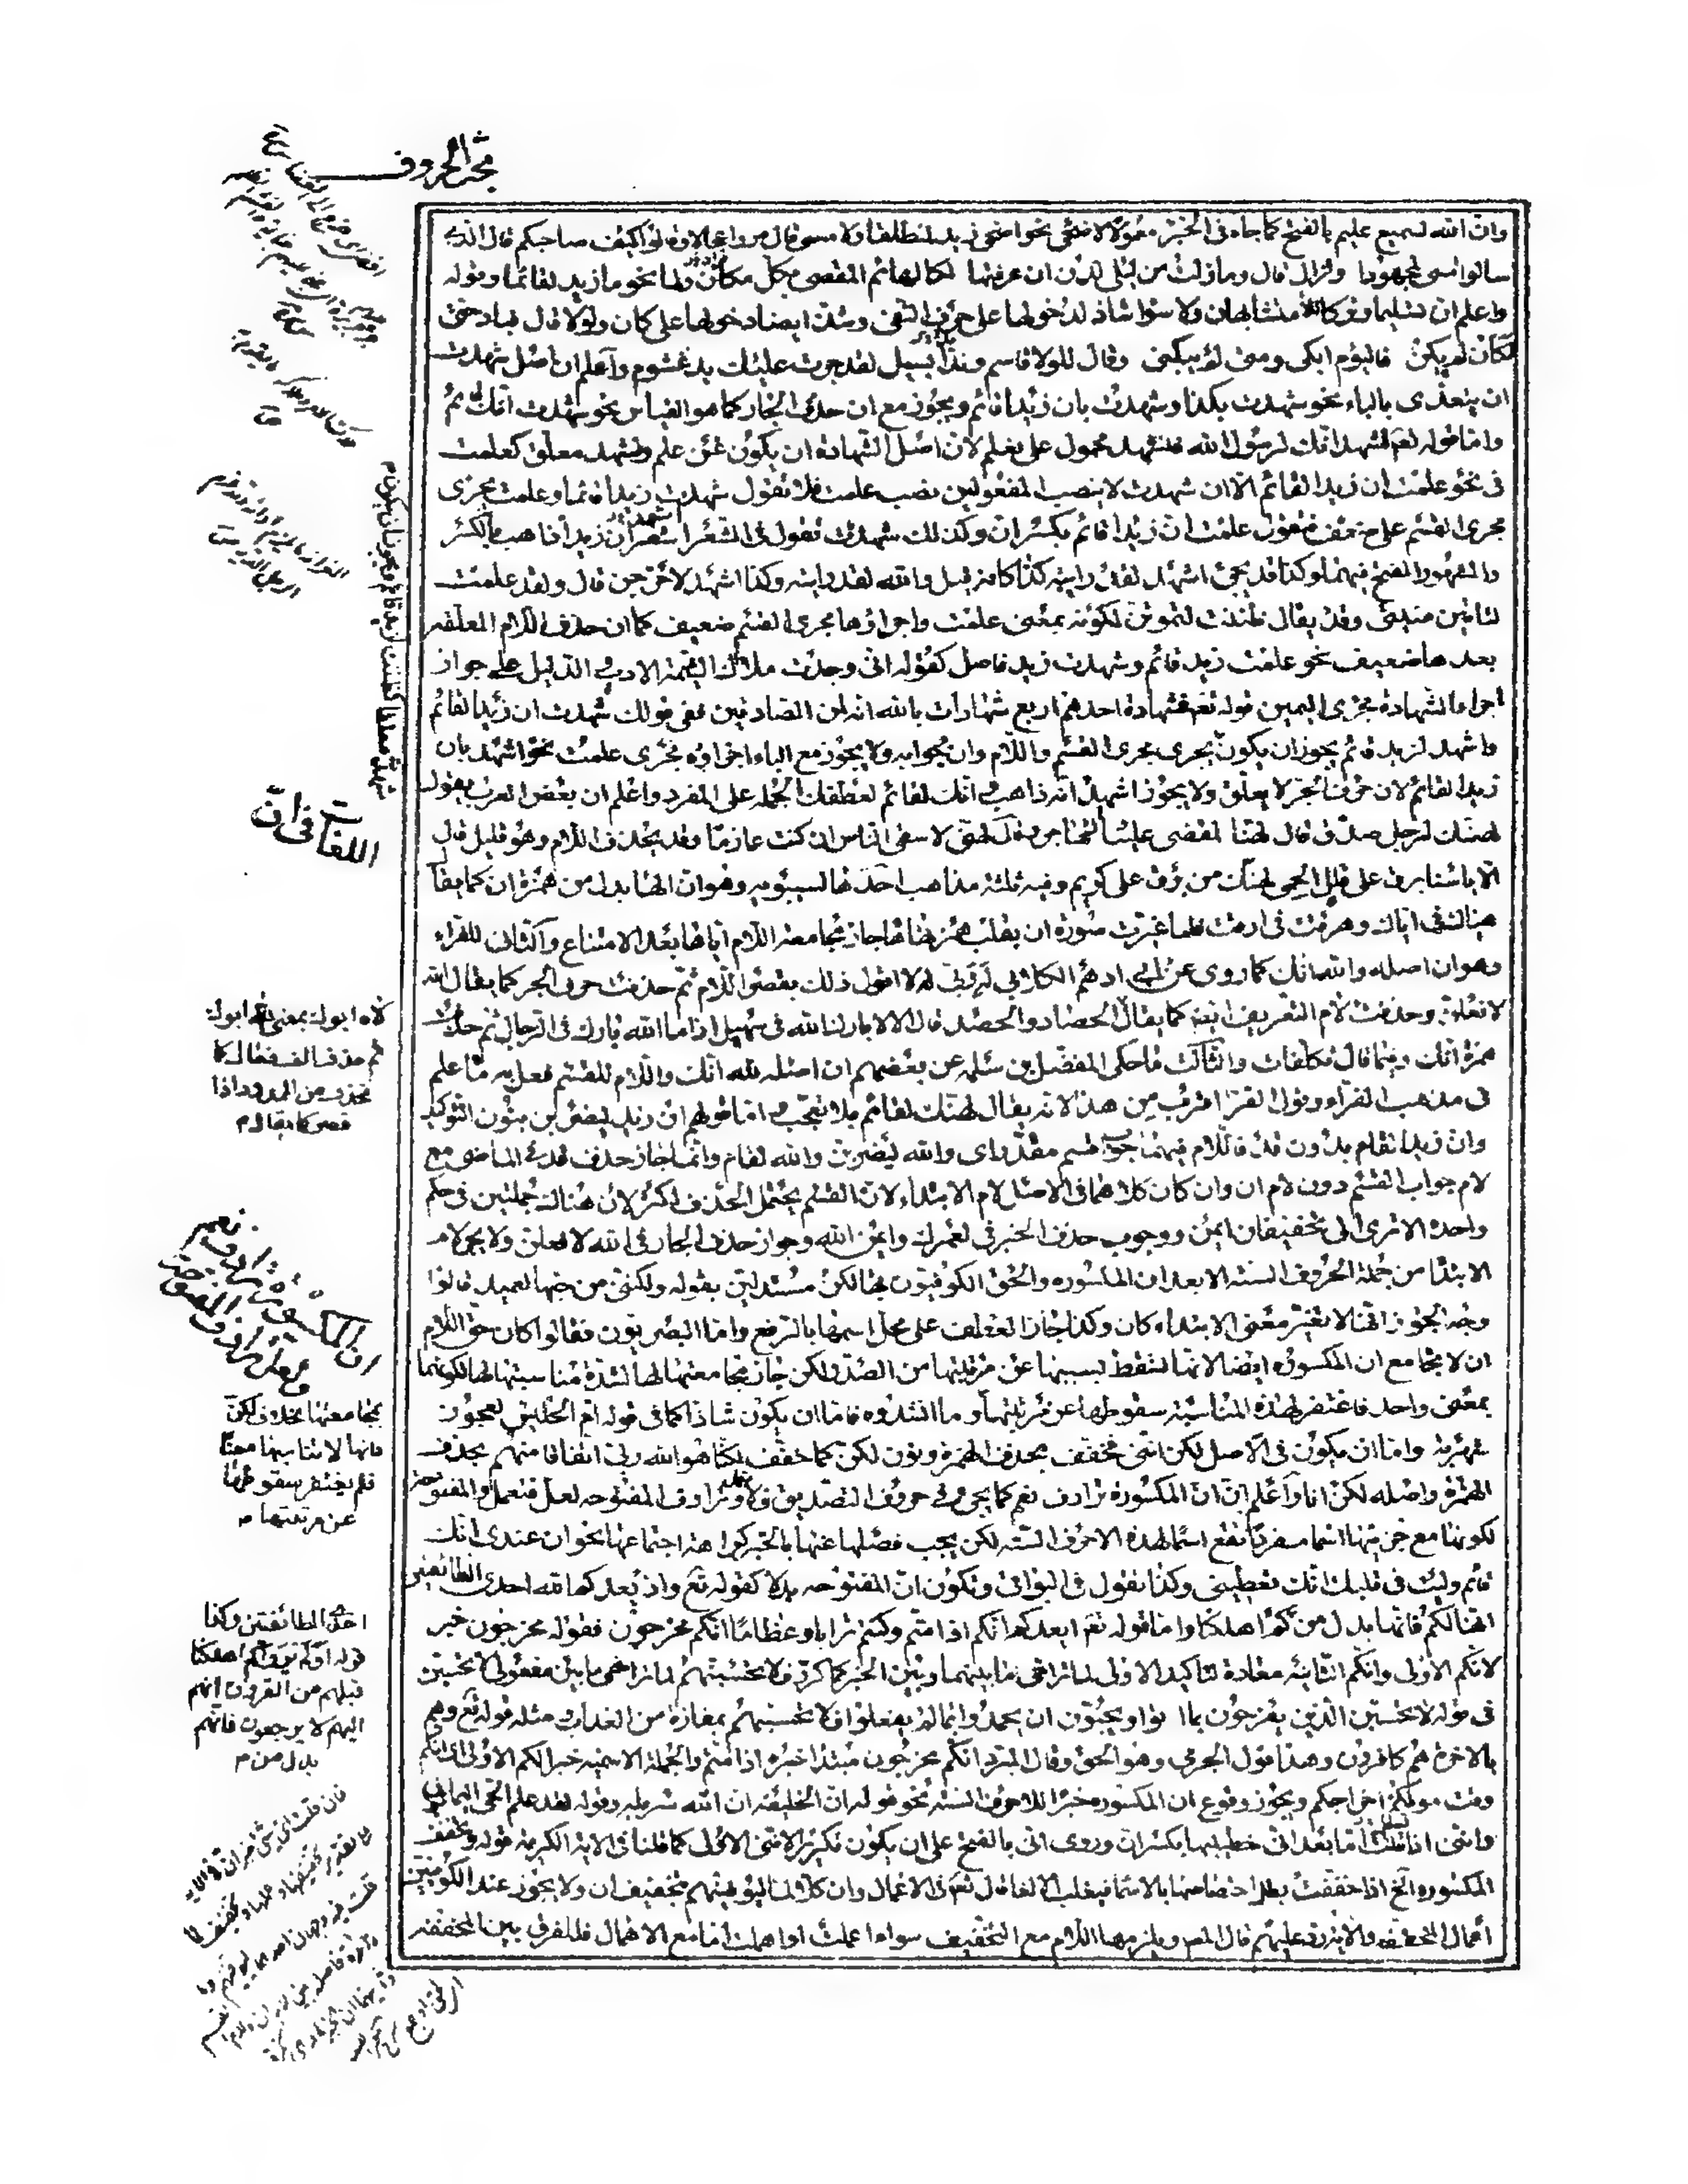 مبحث الحروف
وان الله لسميع عليم بالفتح كما جاء فى الخبر معمولا لاضحى نحو اضحى زيد لمنطلقا ولامسى قال مروا عجالا وقالوا كيف صاحبكم قال الذى
سالوا امسى لمجهودا ولزال قال وما زلت من ليلى لدن ان عرفتها لكالهائم المقصى بكل مكان ولما نحو ما زيد لقائما وقوله
واعلم ان تسليما وتركا للا متشابهان ولا سوا شاذ لدخولها على حرف النفى وشذ ايضا دخولها على كان ولولا قال فبادحتى
لكان لم يكن فاليوم ابكى ومتى لم يبكنى وقال للولا قاسم ويدا بسيل لقد جرت عليك يد غشوم واعلم ان اصل شهدت
ان يتعدى بالباء نحو شهدت بكذا وشهدت بان زيدا قائم ويجوز مع ان حذف الجار كما هو القياس نحو شهدت انك قائم
واما قوله تعم نشهد انك لرسول الله فنشهد محمول على نعلم لان اصل الشهادة ان يكون عن علم فنشهد معلق كعلمت
فى نحو علمت ان زيدا لقائم الا ان شهدت لا ينصب المفعولين نصب علمت فلا تقول شهدت زيدا قائما وعلمت يجرى
مجرى القسم على ضعف فتقول علمت ان زيدا قائم بكسر ان وكذلك شهدت تقول فى الشعر اشهد ان زيدا ذاهب بالكسر
والمشهور الفتح فيهما وكذا قد يجئ اشهد لقد رايته كذا كما قيل والله لقد رايته وكذا اشهد لاخرجن قال ولقد علمت
لتاتين منيتى وقد يقال ظننت لتموتن لكونه بمعنى علمت واجراؤها مجرى القسم ضعيف كما ان حذف اللام المعلقه
بعدها ضعيف نحو علمت زيد قائم وشهدت زيد فاضل كقوله انى وجدت ملاك الشيمة الادب الدليل على جواز
اجراء الشهادة مجرى اليمين قوله تعم فشهادة احدهم اربع شهادات بالله انه لمن الصادقين ففى قولك شهدت ان زيدا لقائم
واشهد لزيد قائم يجوز ان يكون يجرى مجرى القسم واللام وان جوابه ولا يجوز مع الباء اجراؤه مجرى علمت نحو اشهد بان
زيدا لقائم لان حرف الجر لا يعلق ولا يجوز اشهد انه ذاهب انك لقائم لعطفك الجملة على المفرد واعلم ان بعض العرب يقول
لهنك لرجل صدق قال لهنا لمقضى علينا التهاجر وقال لهنى لاشقى الناس ان كنت عازما وقد يحذف اللام وهو قليل قال
الا يا سنا برق على قلل الحمى لهنك من برق على كريم وفيه ثلثة مذاهب احدها لسيبويه وهو ان الها بدل من همزة ان كما يقال
هياك فى اياك وهرقت فى ارقت فلما غيرت صورة ان بقلب همزتها ها جاز مجامعة اللام اياها بعد الامتناع والثانى للفراء
وهو ان اصله والله انك كما روى عن ابى ادهم الكلابى له ربى لا اقول ذلك بقصر اللام ثم حذفت حرف الجر كما يقال الله
لافعلن وحذفت لام التعريف ايضا كما يقال الحصاد والحصد قال الا لا بارك الله فى سهيل اذا ما الله بارك فى الرجال ثم حذفت
همزة انك وفيما قال تكلفات والثالث ما حكى المفضل بن سلمه عن بعضهم ان اصله لله انك واللام للقسم فعل به ما عمل
فى مذهب الفراء وقول الفراء اقرب من هذا لانه يقال لهنك لقائم بلا تعجب واما قولهم ان زيدا ليضربن بنون التوكيد
وان زيدا لقام بدون قد فاللام فيهما جواب قسم مقدر اى والله ليضربن والله لقام وانما جاز حذف قد فى الماضى مع
لام جواب القسم دون لام ان وان كان كلاهما فى الاصل لام الابتداء لان القسم يحتمل الحذف اكثر لان هناك جملتين فى حكم
واحدة الا ترى الى تخفيفات ايمن ووجوب حذف الخبر فى لعمرك وايمن الله وجواز حذف الجار فى الله لافعلن ولا يجئ لام
الابتدا من جملة الحروف الستة الا بعد ان المكسوره والحق الكوفيون بها لكن مستدلين بقوله ولكننى من حبها لعميد قالوا
وجه الجواز انها لا تغير معنى الابتداء كان وكذا جاز العطف على محل اسمها بالرفع واما البصريون فقالوا كان حق اللام
ان لا يجامع ان المكسوره ايضا لانها تسقط بسببها عن مرتبتها من الصدر لكن جاز مجامعتها لها لشدة مناسبتها لها لكونهما
بمعنى واحد فاغتفر لهذه المناسبة سقوطها عن مرتبتها وما انشدوه فاما ان يكون شاذا كما فى قوله ام الحليس لعجوز
شهربه واما ان يكون فى الاصل لكن اننى فخفف بحذف الهمزة ونون لكن كما خفف لكنا هو الله ربى اتفاقا منهم بحذف
الهمزة واصله لكن انا واعلم ان ان المكسوره ترادف نعم كما يجئ فى حروف التصديق فلا تعمل وترادف المفتوحه لعل فتعمل والمفتوحه
لكونها مع جزءيها اسما مفردا تقع اسما لهذه الاحرف الستة لكن يجب فصلها عنها بالخبر كراهة اجتماعهما نحو ان عندى انك
قائم وليت فى قلبك انك تعطينى وكذا تقول فى البواقى وتكون ان المفتوحه بدلا كقوله تع واذ يعدكم الله احدى الطائفتين
انها لكم فانها بدل من كم اهلكنا واما قوله تعم ايعدكم انكم اذا متم وكنتم ترابا وعظاما انكم مخرجون فقوله مخرجون خبر
لانكم الاولى وانكم الثانيه معادة لتاكيد الاولى لما تراخى ما بينهما وبين الخبر كما كرر فلا تحسبنهم لما تراخى ما بين مفعولى لا تحسبن
فى قوله لا تحسبن الذين يفرحون بما اتوا ويحبون ان يحمدوا بما لم يفعلوا فلا تحسبنهم بمفازة من العذاب ومثله قوله تع وهم
بالاخرة هم كافرون وهذا قول الجرمى وهو الحق وقال المبرد انكم مخرجون مبتدا خبره اذا متم والجملة الاسميه خبر انكم الاولى اى انكم
وقت موتكم اخراجكم ويجوز وقوع ان المكسوره خبرا للاحرف الستة نحو قوله ان الخليفة ان الله سربله وقوله لقد علم الحى اليمانى
واننى اذا قلت اما بعد انى خطيبها بكسر ان وروى انى بالفتح على ان يكون تكريرا لاننى الاول كما قلنا فى الاية الكريمه قوله وتخفف
المكسوره الخ اذا خففت بطل اختصاصها بالاسما فيغلب الالغا قال تعم فى الاعمال وان كلا لما ليوفينهم بتخفيف ان ولا يجوز عند الكوفيين
اعمال المخففه والاية رد عليهم قال المص ويلزمها اللام مع التخفيف سواء اعملت او اهملت اما مع الاهمال فللفرق بين المخففه
اللغات فى ان
لاه ابوك بمعنى لله ابوك
ثم حذف الف فعال كما
يحذف من الممدود اذا
قصر كما يقال م
مجامعتها بخلاف لكن
فانها لا تناسبها معنا
فلم يغتفر سقوطها
عن مرتبتها م
احدى الطائفتين وكذا
قوله اولم يروا كم اهلكنا
قبلهم من القرون انهم
اليهم لا يرجعون فانهم
بدل من م